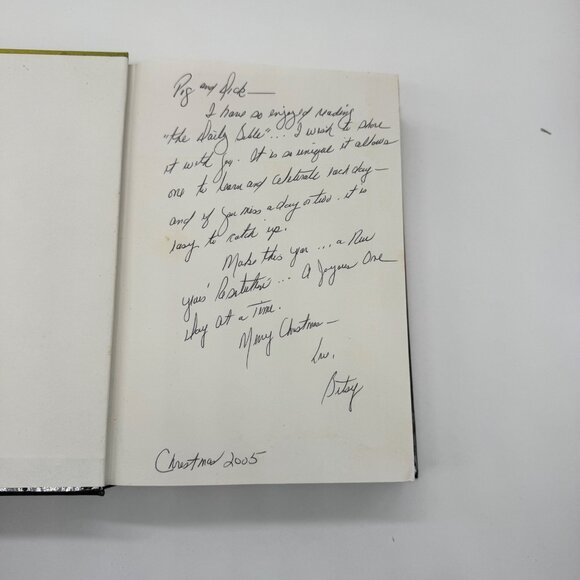 and Dick —
I have so enjoyed reading
"the Daily Bible"... I wish to share
it with you. It is so unique it allows
one to learn and celebrate each day —
and if you miss a day or two, it is
easy to catch up.
Make this your ... a New
years' Resolution ... A Joyous One
Day at a Time.
Merry Christmas —
Love,
Betsy
Christmas 2005